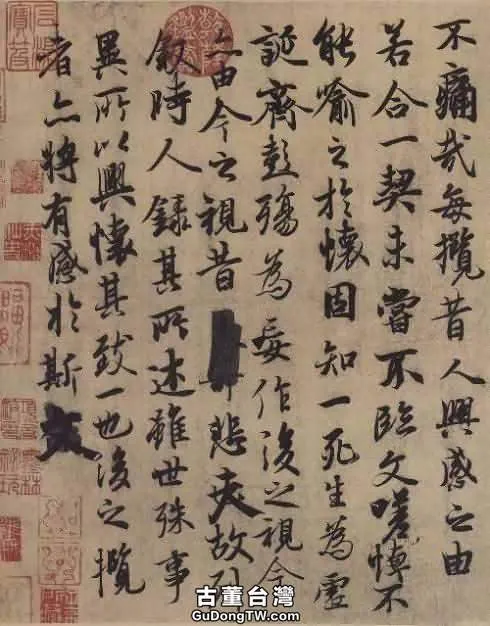 不痛哉每攬昔人興感之由
若合一契未嘗不臨文嗟悼不
能喻之於懷固知一死生為虛
誕齊彭殤為妄作後之視今
亦由今之視昔悲夫故列
叙時人錄其所述雖世殊事
異所以興懷其致一也後之攬
者亦將有感於斯文
古董台灣
GuDongTW.com